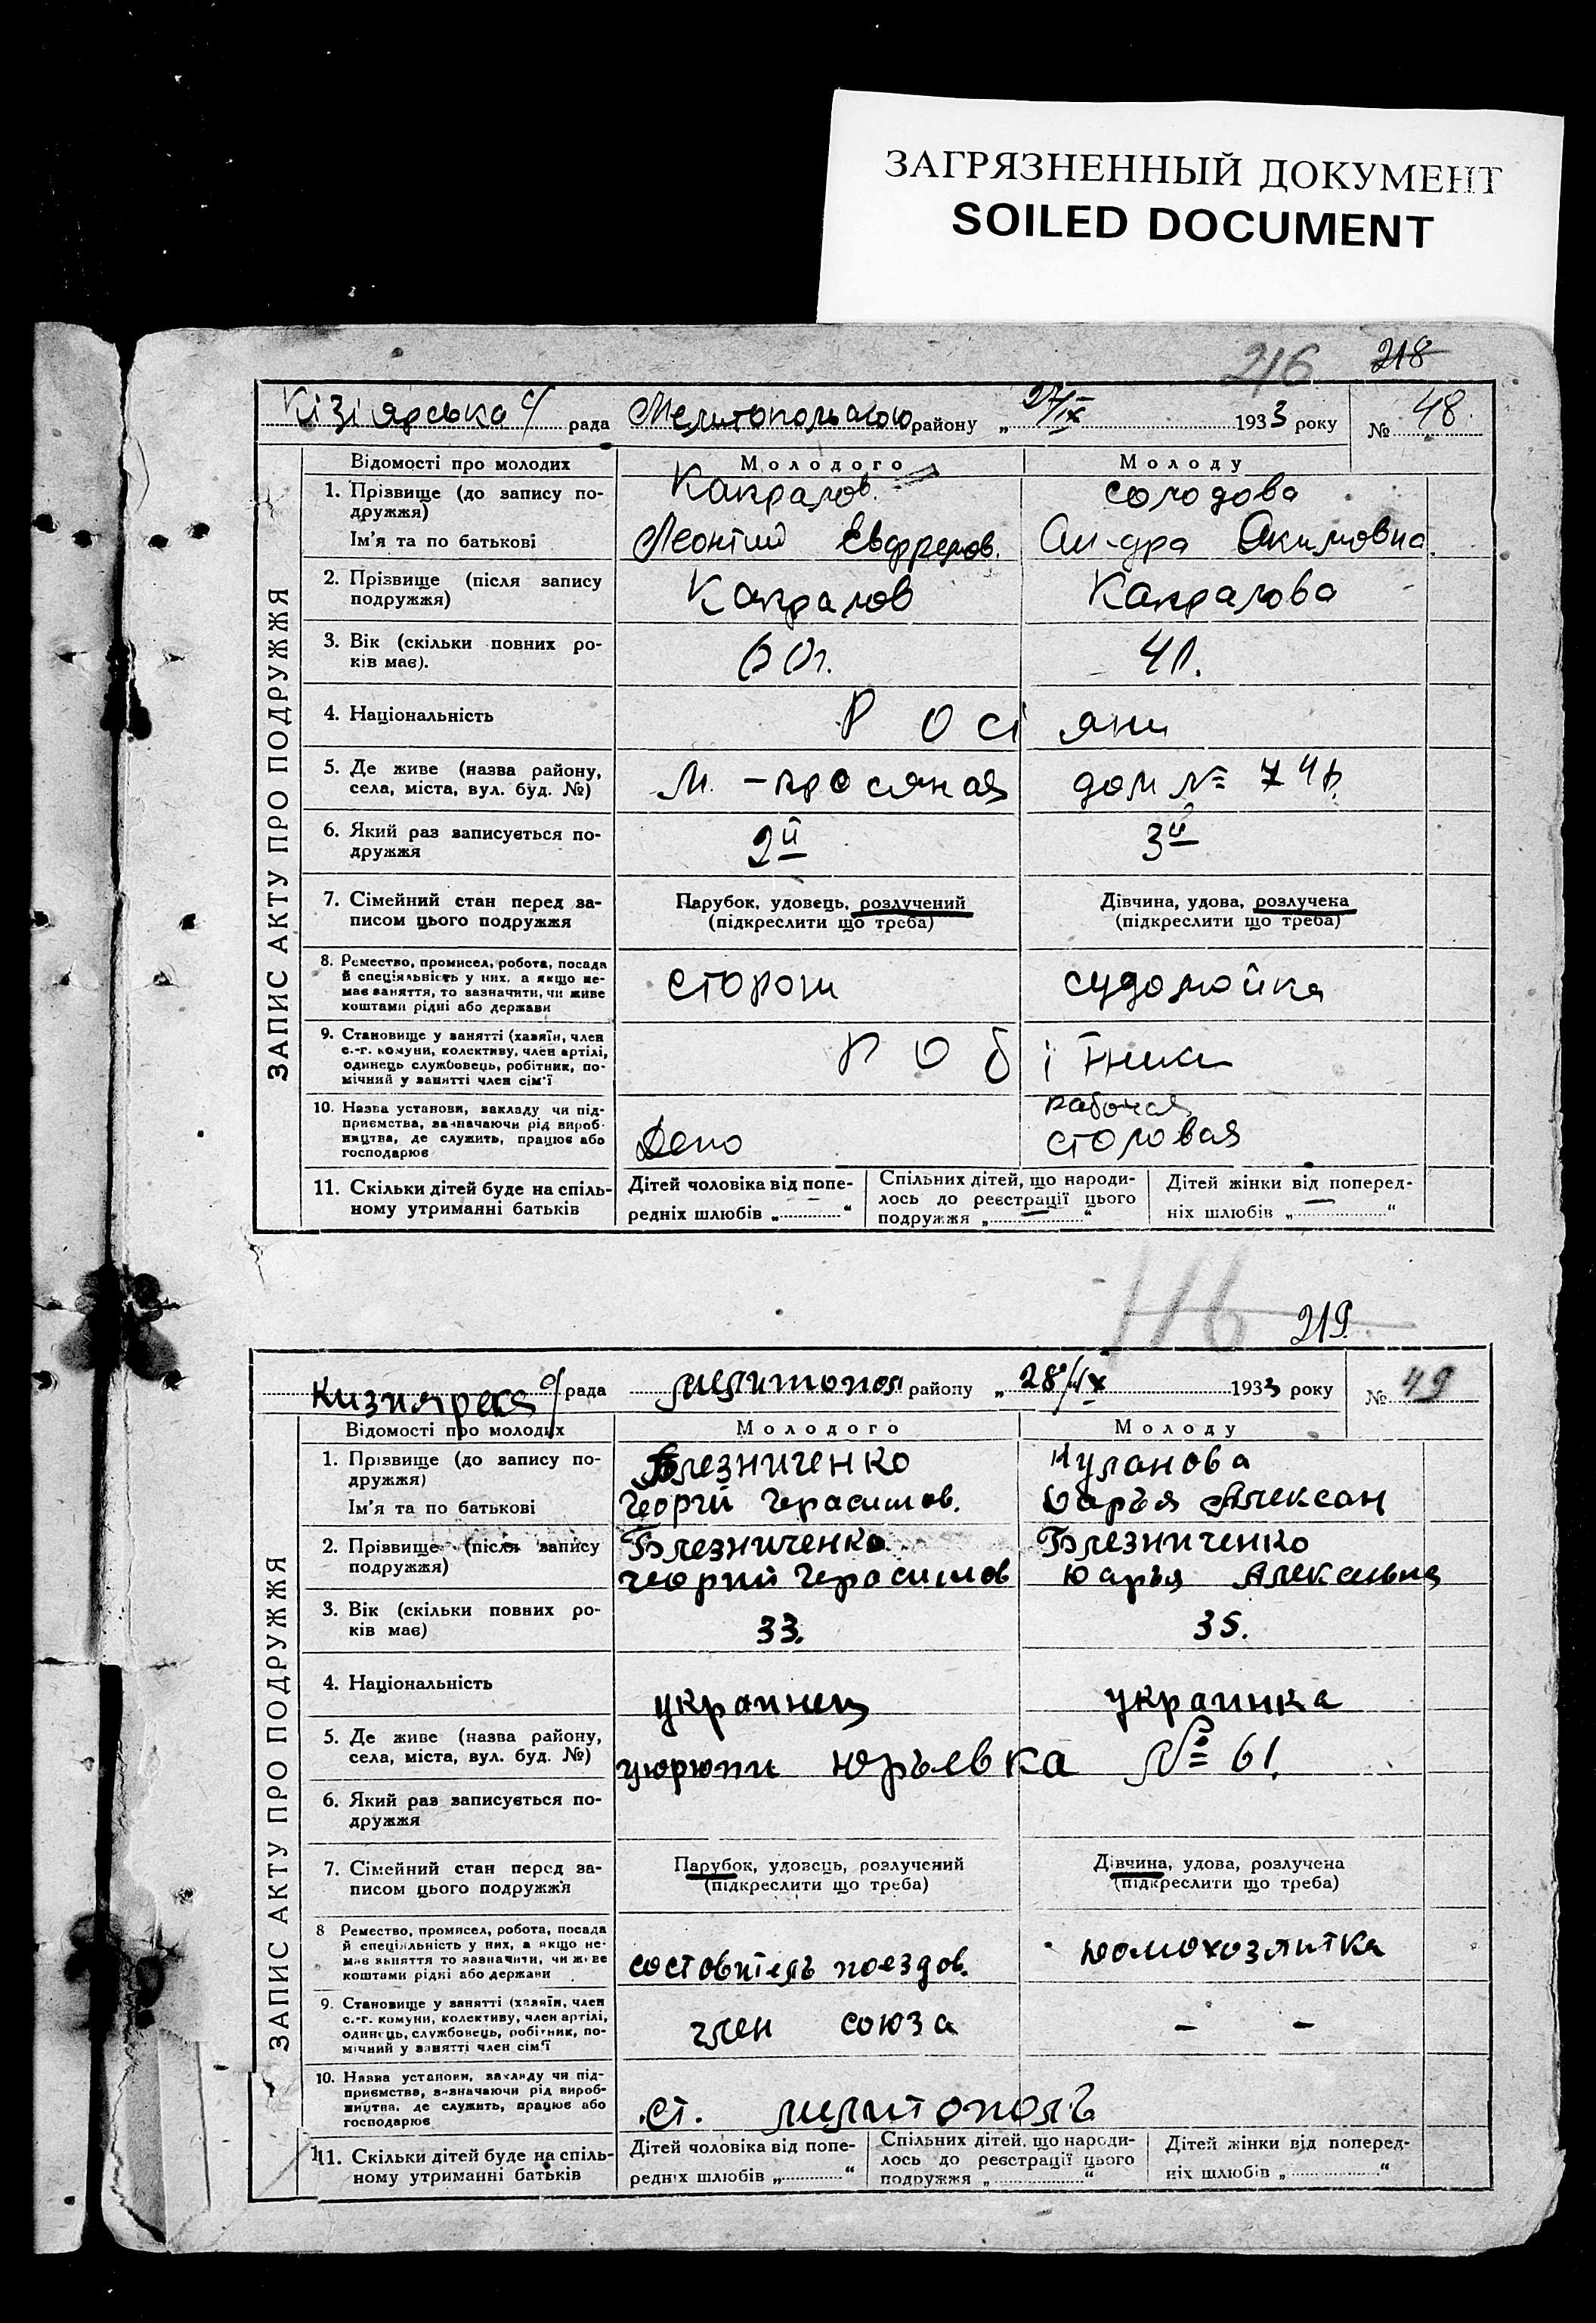 ЗАГРЯЗНЕННЫЙ ДОКУМЕНТ
SOILED DOCUMENT
216 218
Кізіярська с/ рада Мелитопольською району „ 27/IX 1933 року № 48.
ЗАПИС АКТУ ПРО ПОДРУЖЖЯ
Відомості про молодих Молодого Молоду
1. Прізвище (до запису по-
дружжя) Капралов. солодова
Ім'я та по батькові Леонтий Евдфремов. Ал-дра Акимовна.
2. Прізвище (після запису
подружжя) Капралов Капралова
3. Вік (скільки повних ро-
ків має). 60г. 41.
4. Національність Росі яни
5. Де живе (назва району,
села, міста, вул. буд. №) М.-просяная дом №
6. Який раз записується по-
дружжя 2й 3й
7. Сімейний стан перед за-
писом цього подружжя
Парубок, удовець, розлучений
(підкреслити що треба)
Дівчина, удова, розлучека
(підкреслити що треба)
8. Ремество, промисел, робота, посада
й спеціяльність у них, а якщо не-
має заняття, то зазначити, чи живе
коштами рідні або держави
сторож судомойка
9. Становище у занятті (хазяїн, член
с.-г. комуни, колективу, член артілі,
одинець службовець, робітник, по-
мічний у занятті член сім'ї
Роб ітники
10. Назва установи, закладу чи під-
приємства, зазначаючи рід вироб-
ництва, де служить, працює або
господарює
Депо рабочая
столовая
11. Скільки дітей буде на спіль-
ному утриманні батьків
Дітей чоловіка від попе-
редніх шлюбів „ — “
Спільних дітей, що народи-
лось до реєстрації цього
подружжя „ — “
Дітей жінки від поперед-
ніх шлюбів „ — “
116 219
Кизиярская с/ рада мелитопол району „ 28/IX 1933 року № 49
ЗАПИС АКТУ ПРО ПОДРУЖЖЯ
Відомості про молодих Молодого Молоду
1. Прізвище (до запису по-
дружжя) Блезниченко Куланова
Ім'я та по батькові Георгій Герасимов. Дарья Алексан
2. Прізвище (після запису
подружжя) Блезниченко Блезниченко
Георгий Герасимов Дарья
3. Вік (скільки повних ро-
ків має) 33. 35.
4. Національність украинец украинка
5. Де живе (назва району,
села, міста, вул. буд. №) цюрюпи Юрьевка № 61.
6. Який раз записується по-
дружжя
7. Сімейний стан перед за-
писом цього подружжя
Парубок, удовець, розлучений
(підкреслити що треба)
Дівчина, удова, розлучена
(підкреслити що треба)
8 Ремество, промисел, робота, посада
й спеціяльність у них, а якщо не-
має заняття то зазначити, чи живе
коштами рідні або держави
составитель поездов. домохозяйка
9. Становище у занятті (хазяїн, член
с.-г. комуни, колективу, член артілі,
одинець, службовець, робітник, по-
мічний у занятті член сім'ї
член союза – –
10. Назва установи, закладу чи під-
приємства, зазначаючи рід вироб-
ництва, де служить, працює або
господарює
ст. мелитополь
11. Скільки дітей буде на спіль-
ному утриманні батьків
Дітей чоловіка від попе-
редніх шлюбів „ “
Спільних дітей, що народи-
лось до реєстрації цього
подружжя „ “
Дітей жінки від поперед-
ніх шлюбів „ “